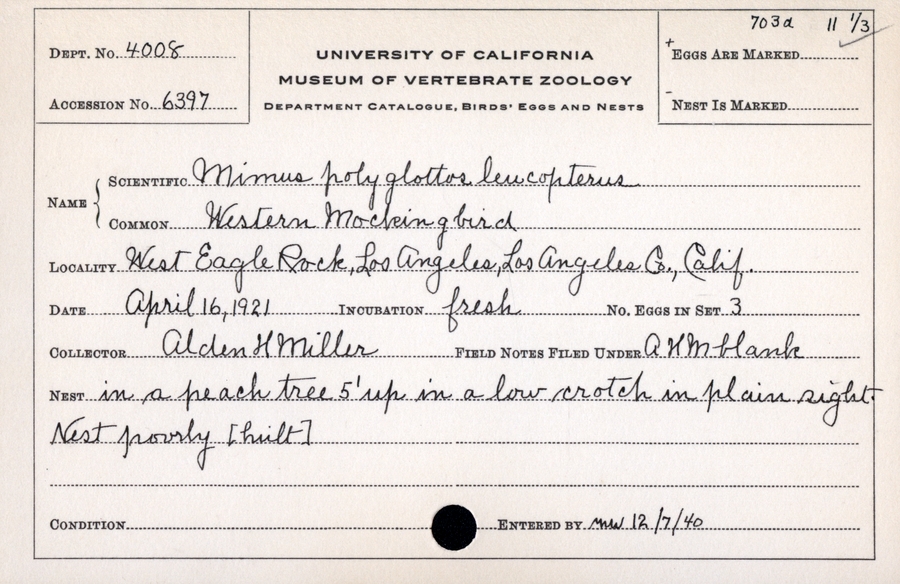 703a 11 1/3
DEPT. NO. 4008
ACCESSION NO. 6397
UNIVERSITY OF CALIFORNIA
MUSEUM OF VERTEBRATE ZOOLOGY
DEPARTMENT CATALOGUE, BIRDS' EGGS AND NESTS
+ EGGS ARE MARKED
- NEST IS MARKED
NAME { SCIENTIFIC Mimus polyglottos leucopterus
COMMON Western Mockingbird
LOCALITY West Eagle Rock, Los Angeles, Los Angeles Co., Calif.
DATE April 16, 1921 INCUBATION fresh NO. EGGS IN SET 3
COLLECTOR Alden H Miller FIELD NOTES FILED UNDER A H M blank
NEST in a peach tree 5' up in a low crotch in plain sight.
Nest poorly [built]
CONDITION ENTERED BY mw 12/7/40